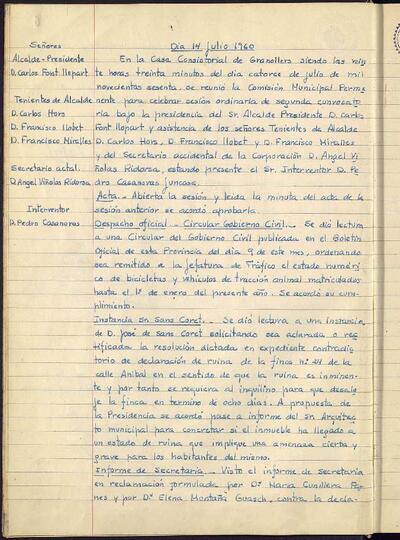 Señores
Alcalde-Presidente
D. Carlos Font Llopart
Tenientes de Alcalde
D. Carlos Hors
D. Francisco Llobet
D. Francisco Miralles
Secretario actal.
D Angel Viñolas Ridorsa
Interventor
D. Pedro Casanovas
Dia 14 julio 1960
En la Casa Consistorial de Granollers siendo las vein
te horas treinta minutos del dia catorce de julio de mil
novecientos sesenta. se reunió la Comisión Municipal Perma
nente para celebrar sesión ordinaria de segunda convocato
ria bajo la presidencia del Sr. Alcalde Presidente D. Carlos
Font Llopart y asistencia de los señores Tenientes de Alcalde
D. Carlos Hors, D. Francisco Llobet y D. Francisco Miralles
y del Secretario accidental de la Corporación D. Angel Vi
ñolas Ridorsa, estando presente el Sr. Interventor D. Pe
dro Casanovas Juncosa.
Acta._ Abierta la sesión y leida la minuta del acta de la
sesión anterior se acordó aprobarla.
Despacho oficial._ Circular Gobierno Civil._ Se dió lectura
a una Circular del Gobierno Civil publicada en el Boletin
Oficial de esta Provincia del dia 9 de este mes, ordenando
sea remitido a la Jefatura de Tráfico el estado numéri
co de bicicletas y vehiculos de tracción animal matriculados
hasta el 1º de enero del presente año. Se acordó su cum
plimiento.
Instancia Sr. Sans Coret._ Se dió lectura a una instancia
de D. José de Sans Coret solicitando sea aclarada o rec
tificada la resolución dictada en expediente contradic
torio de declaración de ruina de la finca nº 41 de la
calle Anibal en el sentido de que la ruina es inminen
te y por tanto se requiera al inquilino para que desalo
je la finca en termino de ocho dias. A propuesta de
la Presidencia se acordó pase a informe del Sr. Arquitec
to municipal para concretar si el inmueble ha llegado a
un estado de ruina que implique una amenaza cierta y
grave para los habitantes del mismo.
Informe de Secretaria._ Visto el informe de Secretaria
en reclamación formulada por Dª Maria Cunillera Pag
nes y por Dª Elena Montañá Guasch, contra la decla-